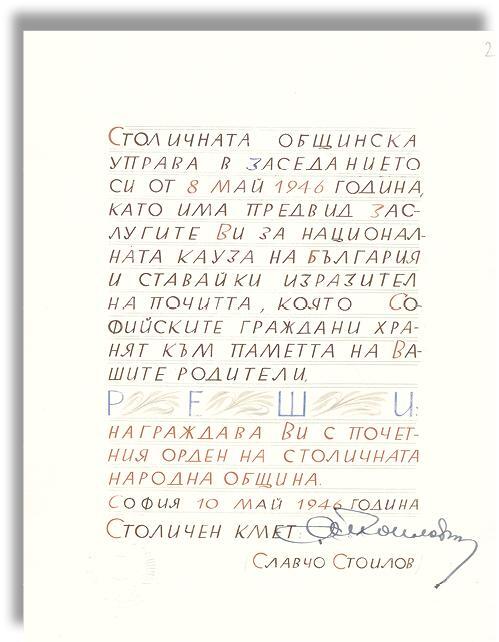 2
СТОЛИЧНАТА ОБЩИНСКА
УПРАВА В ЗАСЕДАНИЕТО
СИ ОТ 8 МАЙ 1946 ГОДИНА,
КАТО ИМА ПРЕДВИД ЗАС-
ЛУГИТЕ ВИ ЗА НАЦИОНАЛ-
НАТА КАУЗА НА БЪЛГАРИЯ
И СТАВАЙКИ ИЗРАЗИТЕЛ
НА ПОЧИТТА, КОЯТО СО-
ФИЙСКИТЕ ГРАЖДАНИ ХРА-
НЯТ КЪМ ПАМЕТТА НА ВА-
ШИТЕ РОДИТЕЛИ,
РЕШИ:
НАГРАЖДАВА ВИ С ПОЧЕТ-
НИЯ ОРДЕН НА СТОЛИЧНАТА
НАРОДНА ОБЩИНА.
СОФИЯ 10 МАЙ 1946 ГОДИНА
СТОЛИЧЕН КМЕТ:
СЛАВЧО СТОИЛОВ